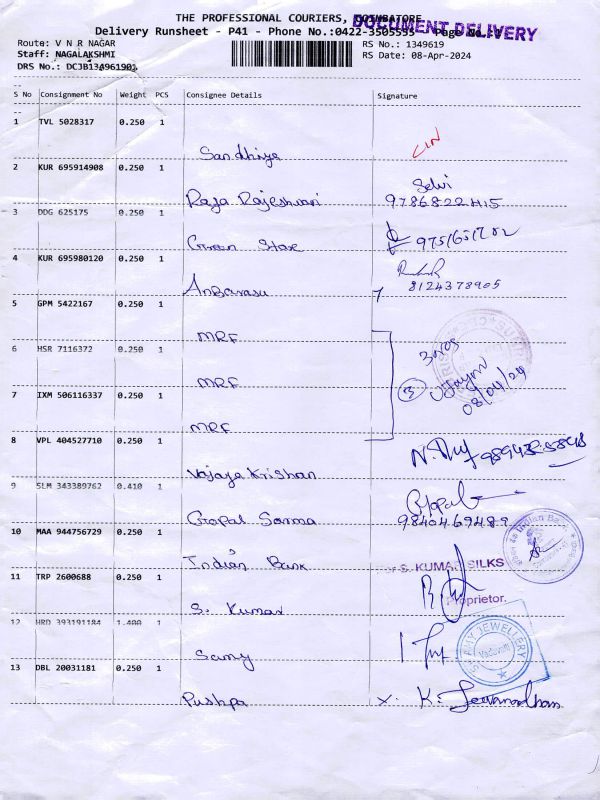 THE PROFESSIONAL COURIERS, COIMBATORE
DOCUMENT DELIVERY
Delivery Runsheet - P41 - Phone No.:0422-3505595 Page No.:1
Route: V N R NAGAR
RS No.: 1349619
Staff: NAGALAKSHMI
RS Date: 08-Apr-2024
DRS No.: DCJB134961901
S No Consignment No Weight PCS Consignee Details Signature
1 TVL 5028317 0.250 1
Sandhiya
2 KUR 695914908 0.250 1
Selvi
Raja Rajeshwari 9786822415
3 DDG 625175 0.250 1
Green Store
4 KUR 695980120 0.250 1
Anbarasu 8124378905
5 GPM 5422167 0.250 1
MRF
6 HSR 7116372 0.250 1
MRF
3
08/04/24
7 IXM 506116337 0.250 1
MRF
8 VPL 404527710 0.250 1
Vajaya Krishan
9 SLM 343389762 0.410 1
Gopal
Gopal Sarma 9840469489
10 MAA 944756729 0.250 1
Indian Bank
S. KUMAR SILKS
11 TRP 2600688 0.250 1
Proprietor.
S. Kumar
12 HRD 393191184 1.400 1
JEWELLERY
Vadavalli
Samy
13 DBL 20031181 0.250 1
Pushpa x. K. Jeevanandham